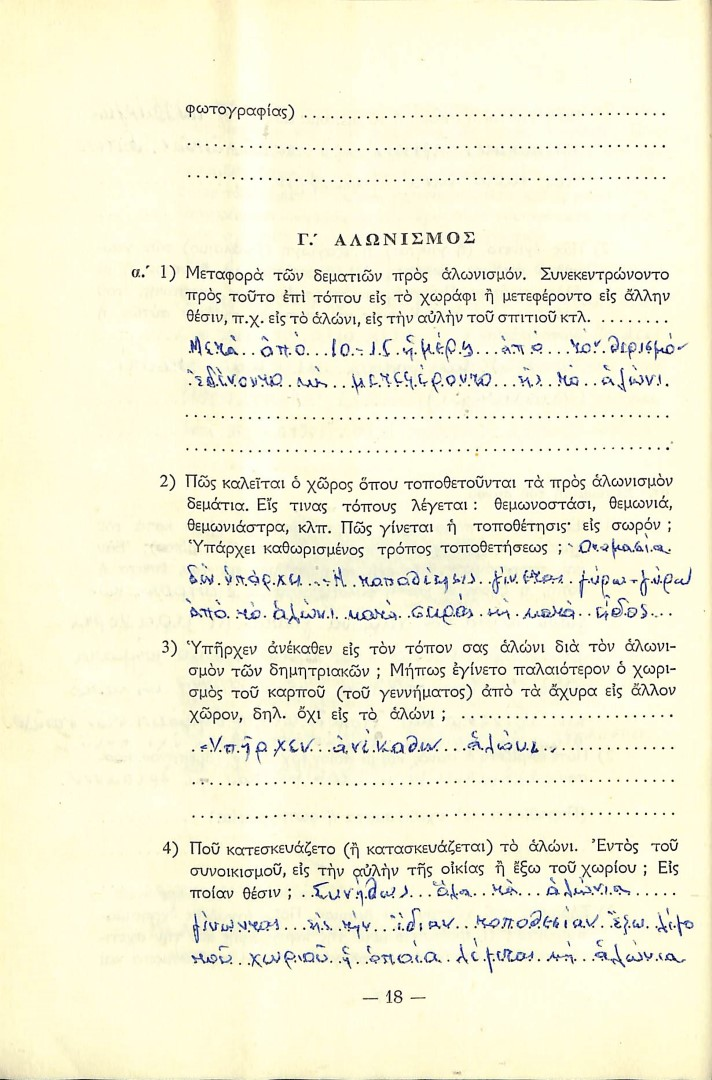 φωτογραφίας) ........................................
................................................
................................................
Γ.΄ ΑΛΩΝΙΣΜΟΣ
α.΄ 1) Μεταφορὰ τῶν δεματιῶν πρὸς ἁλωνισμόν. Συνεκεντρώνοντο
πρὸς τοῦτο ἐπὶ τόπου εἰς τὸ χωράφι ἢ μετεφέροντο εἰς ἄλλην
θέσιν, π.χ. εἰς τὸ ἁλώνι, εἰς τὴν αὐλὴν τοῦ σπιτιοῦ κτλ. ........
Μετὰ ἀπὸ 10-15 ἡμέρες ἀπὸ τὸν θερισμὸ
ἐδένοντο καὶ μετεφέροντο εἰς τὸ ἁλώνι.
................................................
................................................
2) Πῶς καλεῖται ὁ χῶρος ὅπου τοποθετοῦνται τὰ πρὸς ἁλωνισμὸν
δεμάτια. Εἴς τινας τόπους λέγεται : θεμωνοστάσι, θεμωνιά,
θεμωνιάστρα, κλπ. Πῶς γίνεται ἡ τοποθέτησις· εἰς σωρόν ;
Ὑπάρχει καθωρισμένος τρόπος τοποθετήσεως ; Ὀνομασία
δὲν ὑπάρχει. Ἡ τοποθέτησις γίνεται γύρω-γύρω
ἀπὸ τὸ ἁλώνι κατὰ σειρὰς καὶ κατὰ εἶδος...
3) Ὑπῆρχεν ἀνέκαθεν εἰς τὸν τόπον σας ἁλώνι διὰ τὸν ἁλωνι-
σμὸν τῶν δημητριακῶν ; Μήπως ἐγίνετο παλαιότερον ὁ χωρι-
σμὸς τοῦ καρποῦ (τοῦ γεννήματος) ἀπὸ τὰ ἄχυρα εἰς ἄλλον
χῶρον, δηλ. ὄχι εἰς τὸ ἁλώνι ; ........................
Ὑπῆρχεν ἀνέκαθεν ἁλώνι.
................................................
................................................
4) Ποῦ κατεσκευάζετο (ἢ κατασκευάζεται) τὸ ἁλώνι. Ἐντὸς τοῦ
συνοικισμοῦ, εἰς τὴν αὐλὴν τῆς οἰκίας ἢ ἔξω τοῦ χωρίου ; Εἰς
ποίαν θέσιν ; Συνήθως ὅλα τὰ ἁλώνια
γίνονται εἰς τὴν ἰδίαν τοποθεσίαν ἔξω λίγο
τοῦ χωριοῦ ἡ ὁποία λέγεται καὶ ἁλώνια
— 18 —